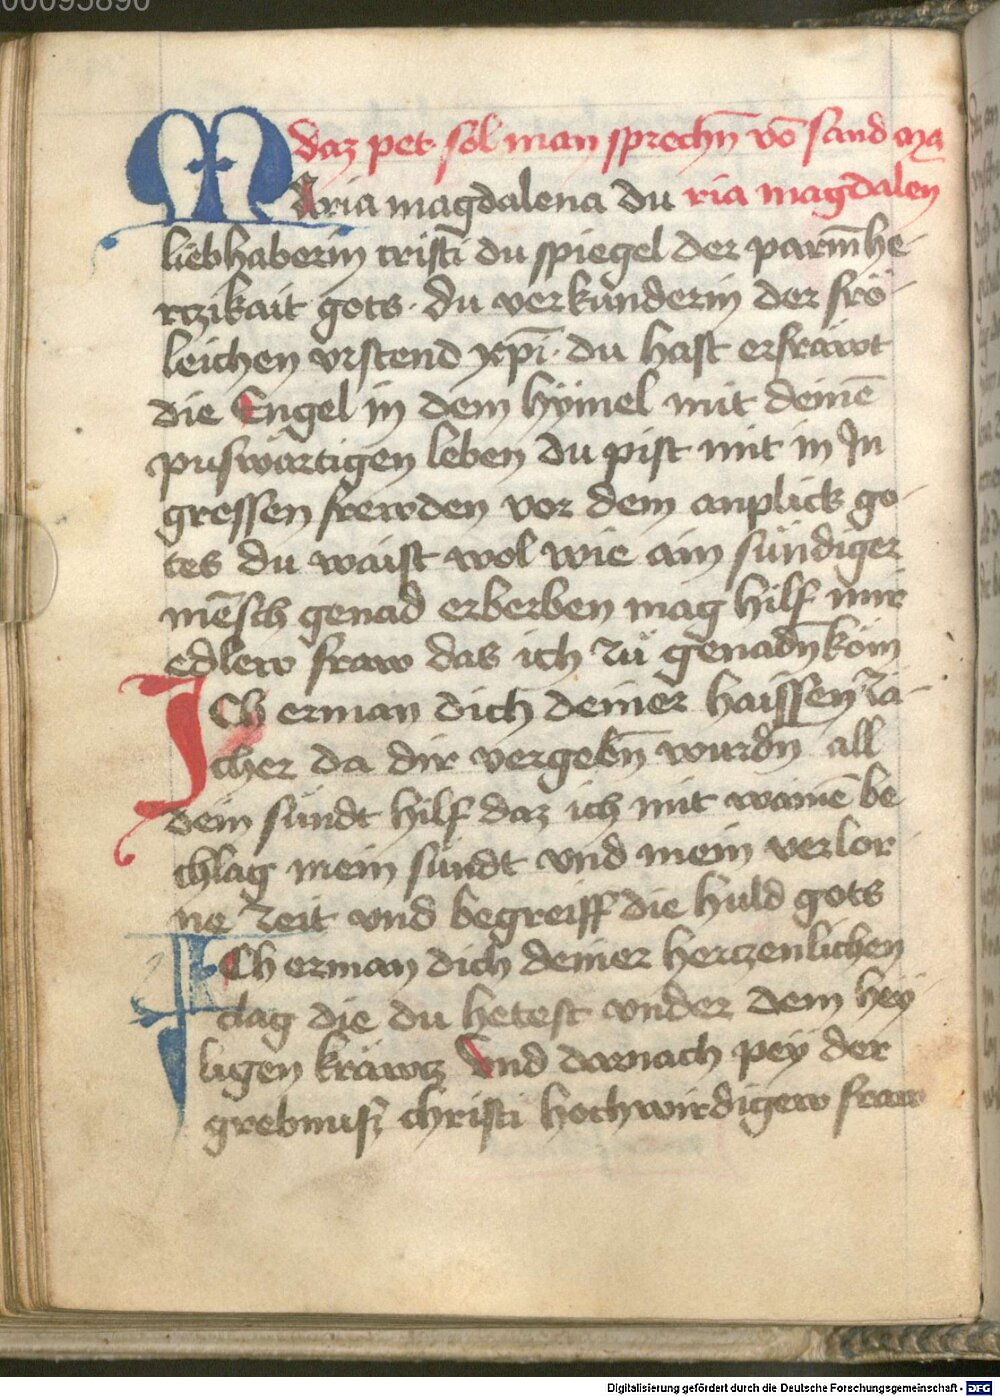 00095890
daz pet sol man sprechn̄ vō sand ma
MAria magdalena du ria magdalen
liebhaberin cristi du spiegel der parm̄he-
rczikait gots · du verkunderin der frö-
leichen vrstend xp̄i · du hast erfräwt
die Engel in dem hÿmel mit deinē
puſwärtigen leben du pist mit in In
grossen frewden vor dem anplick go-
tes du waist wol wie ain sündiger
mēsch genad erberben mag hilf mir
edlew fraw das ich zü genadn̄ köm
ICh erman dich deiner haissen zä-
cher da dir vergebn̄ wurdn̄ all
dein sündt hilf daz ich mit wainē be
chlag mein sündt vnd mein verlor
ne zeit vnd begreiff die huld gots
ICh erman dich deiner herczenlichen
clag die du hetest vnder dem hey
ligen kräwcz Vnd darnach peÿ der
grebnuſz christi hochwirdigew fraw
Digitalisierung gefördert durch die Deutsche Forschungsgemeinschaft - DFG